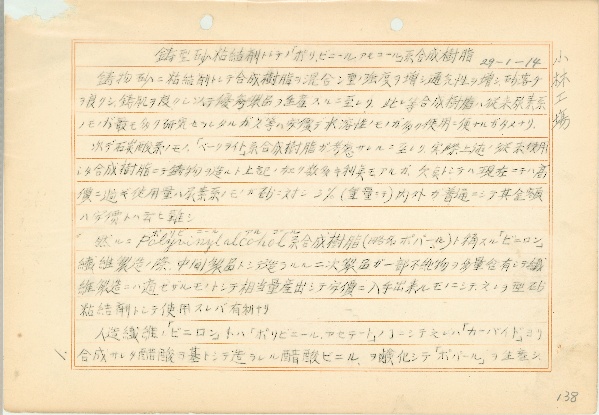 鋳型砂ノ粘結剤トシテ「ポリ、ビニール、アルコール」系合成樹脂 29-1-14
小林工場
鋳物砂ニ粘結剤トシテ合成樹脂ヲ混合シ型ノ強度ヲ増シ通気性ヲ増シ砂落チ
ヲ良クシ鋳肌ヲ良クシ以テ優秀製品ヲ生産スルニ至レリ、此レ等合成樹脂ハ従来尿素系
ノモノガ最モ多ク研究セラレタルガ之等ハ安價デ水溶性ノモノガ多ク使用ニ便ナルガタメナリ、
次デ石炭酸系ノモノ、「ベークライト」系合成樹脂ガ考慮サルルニ至レリ、実際上述ノ
合成樹脂ニテ鋳物ヲ造ルト上記ノ如ク数多ノ利点モアルガ、欠点トシテハ現在ニテハ高
價ニ過ギ使用量ハ尿素系ノモノデ砂ニ対シ 5% (重量ニテ) 内外ガ普通ニシテ其金額
ハ安價トハ云ヒ難シ
然ルニ Polyvinyl alcohol 系合成樹脂 (略名ポバール) ト稱スル「ビニロン」
ポリビニールアルコール
繊維製造ノ際、中間製品トシテ造ラルル二次製品ガ一部不純物ヲ多量含有シテ繊
維製造ニハ適セザルモノトシテ相当量産出シテ安價ニ入手出来ルモノニシテ之ヲ型砂
粘結剤トシテ使用スレバ有利ナリ
人造繊維ノ「ビニロン」ハ「ポリビニール、アセテート」ノ一ニシテ之レハ「カーバイド」ヨリ
合成サレタ醋酸ヲ基トシテ造ラレル醋酸ビニール、ヲ鹸化シテ「ポバール」ヲ生産シ、
138